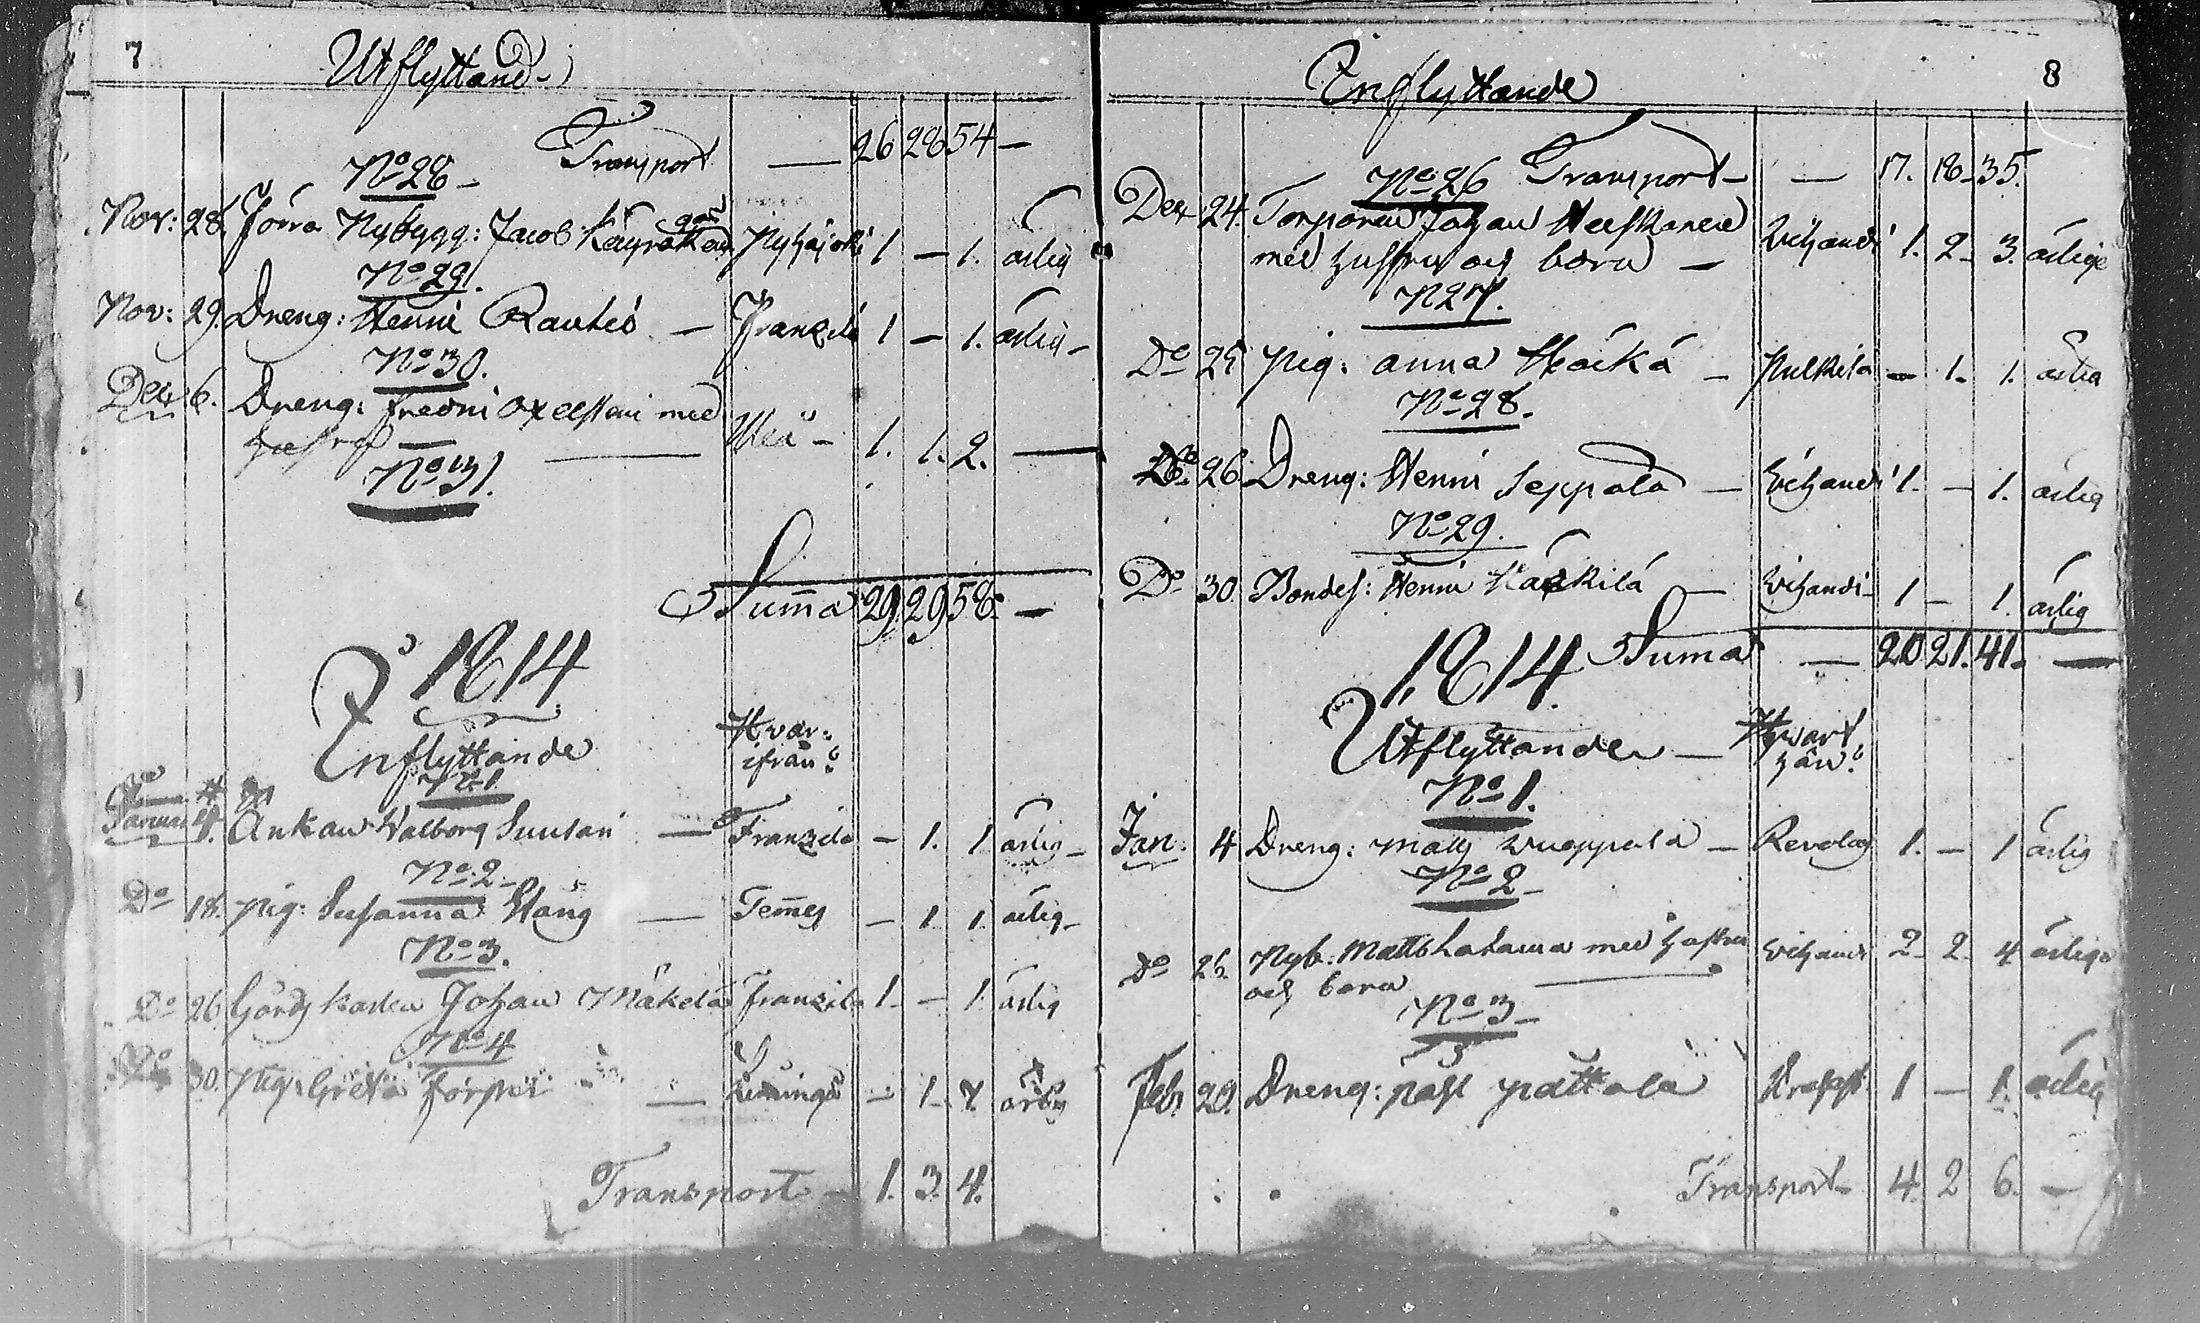 7
Utflyttand.
Transport — 26 28 54 —
No 28 —
Nov: 28. Förra Nybygg: Jacob Pyhäjoki 1 — 1. ärlig
No 29.
Nov: 29. Dreng: Henric Rautio — Franzila 1 — 1. ärlig —
No 30.
Dec: 6. Dreng: med Uleå — 1. 1. 2. —
hustru —
No 31.
Summa 29. 29 58. —
1814
Inflyttande
Hvar-
ifrån?
No 1
Januar 4. Enkan Valborg Suutari — Franzila — 1. 1 ärlig —
No 2 —
Do 18. pig: Susanna Stång — Temmes — 1. 1. ärlig —
No 3.
Do 26. Gårdskarlen Johan Mäkelä Franzila 1 — — 1. ärlig
No 4
Do 30. Pig: Greta — Liminga — 1. 1. ärlig
Transport — 1. 3. 4.
8
Inflyttande
No 26 Transport — — 17. 18 — 35.
Dec 24. Torparen Johan Heiskanen Vihandi 1. 2 — 3. ärlige
med hustru och barn —
No 27.
Do 25 pig: Anna — Pulkila — 1. 1. ärlig
No 28.
Do 26. Dreng: Henric Seppälä — Vihandi 1. — 1. ärlig
No 29.
Do 30. Bondes: Henric Härkilä — Vihandi — 1 — 1. ärlig
Suma — 20 21. 41 — —
1814.
Utflyttande — Hvart
hän?
No 1.
Jan: 4 Dreng: Matts — Revolax 1. — 1 ärlig
No 2 —
Do 26. Nyb: Matts Lahama med hustru Vihandi 2 — 2 — 4 ärlige
och barn —
No 3 —
Feb. 20. Dreng: Påhl Pättälä 1 — 1. ärlig
Transport — 4. 2 6. —